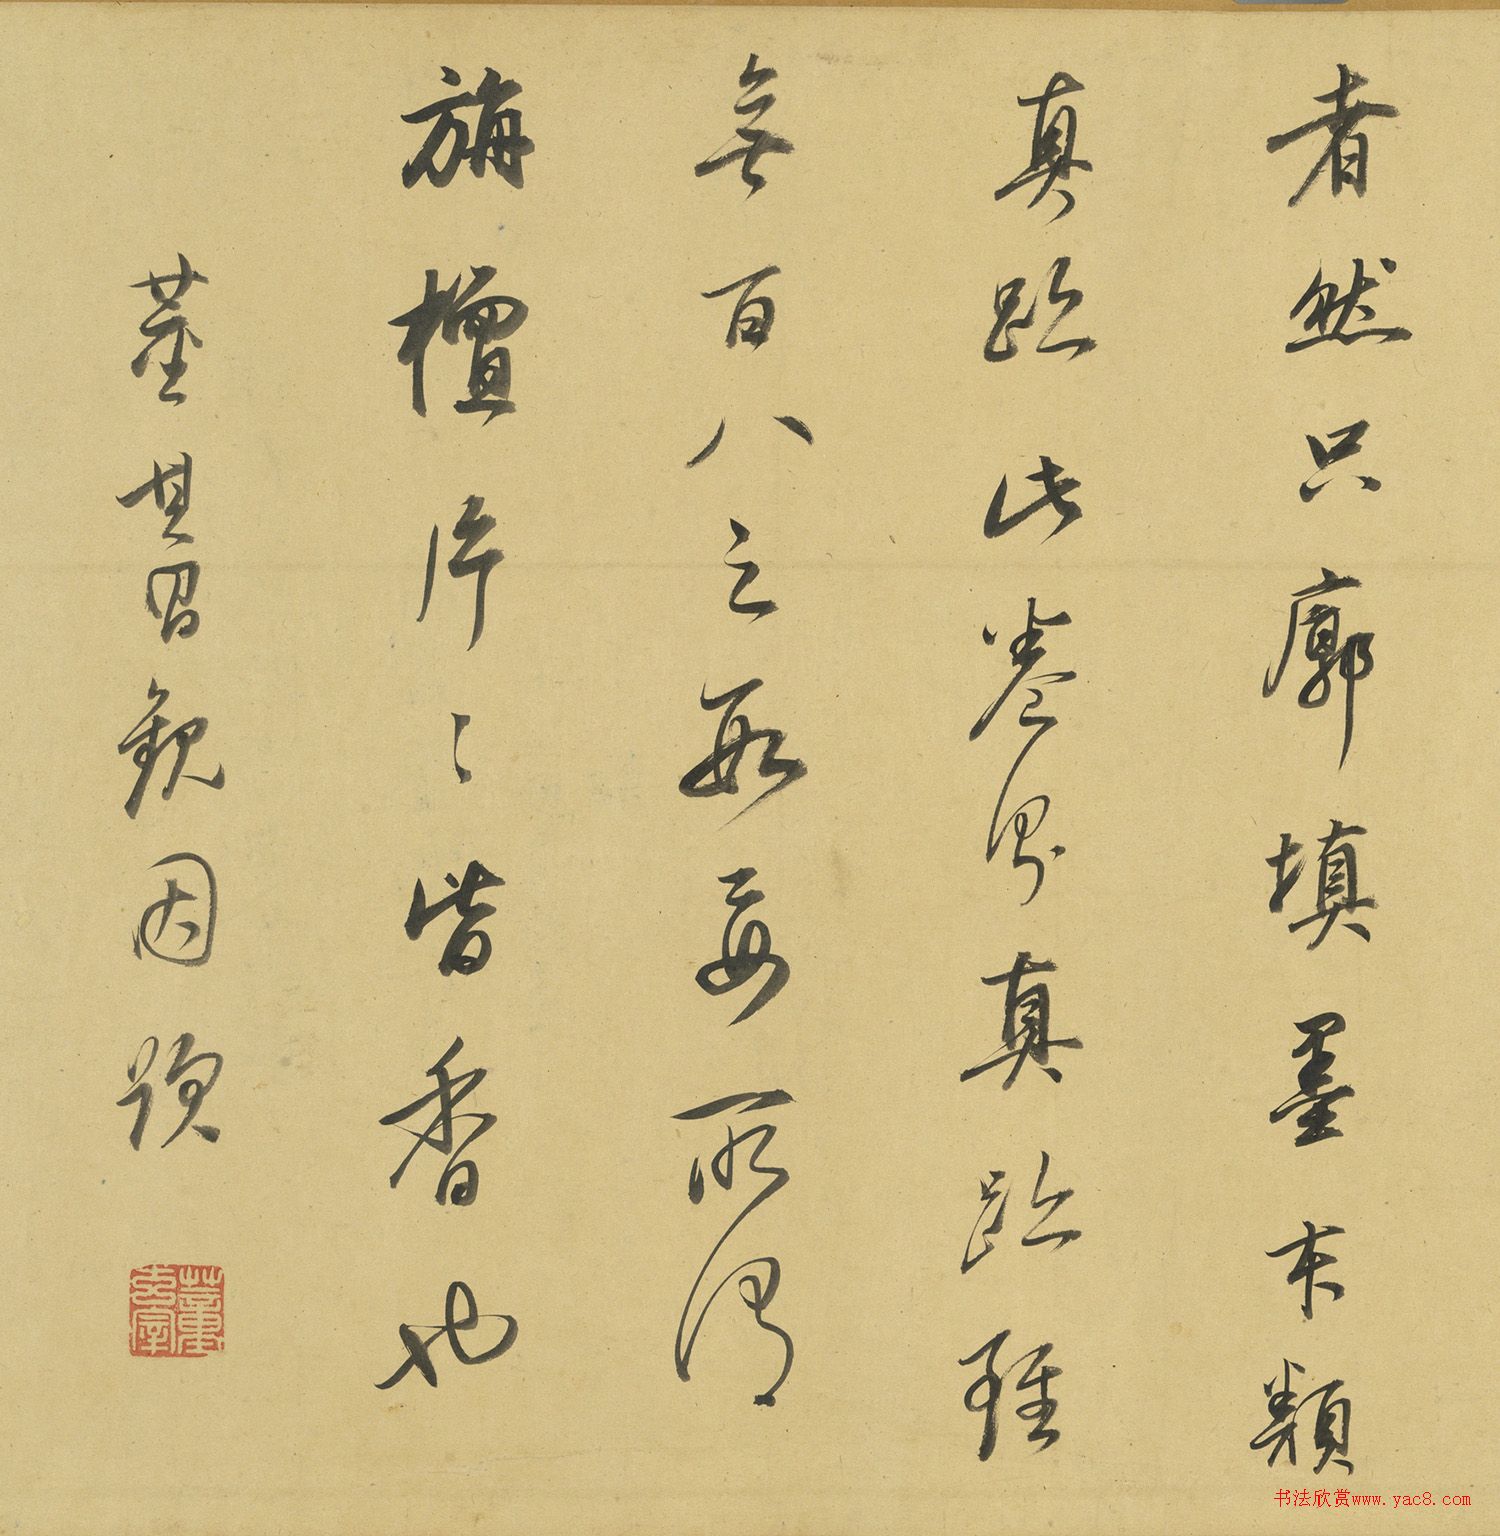 者然只廓填墨本類
真跡此卷真真跡雖
無百八之數要所謂
旃檀片〻皆香也
董其昌觀因題
董玄宰
书法欣赏www.yac8.com